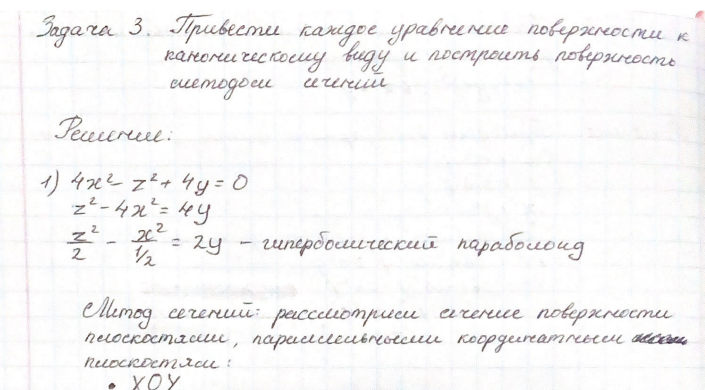 Задача 3. Привести каждое уравнение поверхности к
каноническому виду и построить поверхность
методом сечений
Решение:
1) 4x² - z² + 4y = 0
z² - 4x² = 4y
z²/2 - x²/(1/2) = 2y - гиперболический параболоид
Метод сечений: рассмотрим сечение поверхности
плоскостями, параллельными координатным
плоскостям:
• XOY